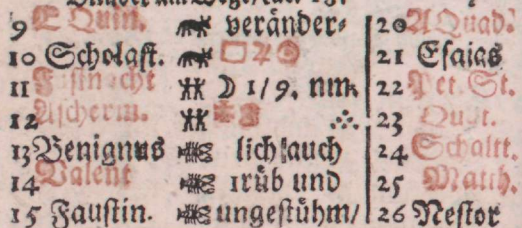 9 E Quin. veränder⸗ 20 A Quad.
10 Scholast. □ ♃ ☉ 21 Esaias
11 Fastnacht ☽ 1/9. nm. 22 Pet. St.
12 Ascherm. 23 Quat.
13 Benignus lich auch 24 Schaltt.
14 Valent trüb und 25 Matth.
15 Faustin. ungestühm/ 26 Nestor